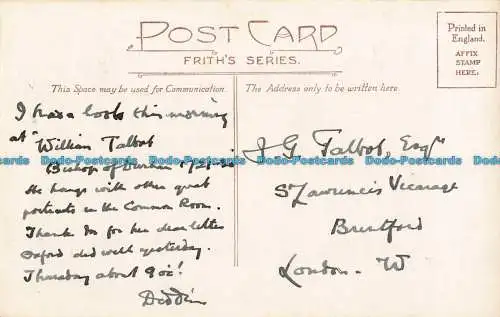 POST CARD
FRITH'S SERIES.
Printed in
England.
AFFIX
STAMP
HERE:
This Space may be used for Communication.
The Address only to be written here.
I had a look this morning
at "William Talbot
Bishop of Durham 1721-30"
He hangs with other great
portraits in the Common Room.
Thank for her dear letter
Oxford did well yesterday.
Thursday about 9
J G Talbot, Esqre
St Lawrence's Vicarage
Brentford
London - W
Dodo-Postcards Dodo-Postcards Dodo-Postcards Dodo-Postcards Dodo-Postcards Dodo-Postcards